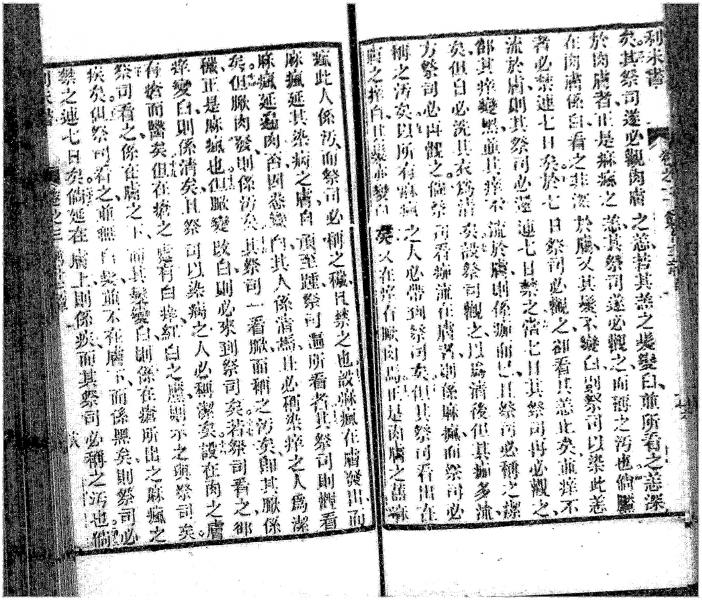 利未書
矣其祭司遂必觀肉膚之恙若其恙之髮變白並所看之恙深
於肉膚者正是痲瘋之恙其祭司遂必觀之而稱之汚也倘
在肉膚係白看之非深於膚又其髮不變白則祭司以染此恙
者必禁連七日矣於七日祭司必觀之卻看其恙此矣並痒不
流於膚則其祭司必還連七日禁之當七日其祭司再必觀之
卻其痒變黑並其痒不流於膚則係痂而已且祭司必稱之潔
矣但自必洗其衣為清矣設祭司觀之以為清後但其痂多流
方祭司必再觀之倘祭司看痂流在膚者則係痲瘋而祭司必
稱之汚矣以所有痲瘋之人必帶到祭司矣但其祭司看出在
膚之痒白且其髮亦變白矣又在痒有厥肉焉正是肉膚之舊痲
瘋此人係汚而祭司必稱之穢且禁之也設痲瘋在膚發出而
痲瘋延其染病之膚自頭至踵祭司遍所看者其祭司則輕看
痲瘋延遍肉否因悉變白其人係清焉且必稱染痒之人為潔
矣但厥肉發則係汚矣其祭司一看厥而稱之汚矣即其厥係
穢正是痲瘋也但厥變改白則必來到祭司矣若祭司看之卻
痒變白則係清矣其祭司以染病之人必稱潔矣設在肉之膚
有瘡而醫矣但在瘡之處有白痒紅白之應則示之與祭司矣
祭司看之係在膚之下而其髮變白則係在瘡所出之痲瘋之
疾矣但祭司看之並無白髮並不在膚下而係黑矣則祭司必
禁之連七日矣倘延在膚上則係疾而其祭司必稱之汚也倘
利未書